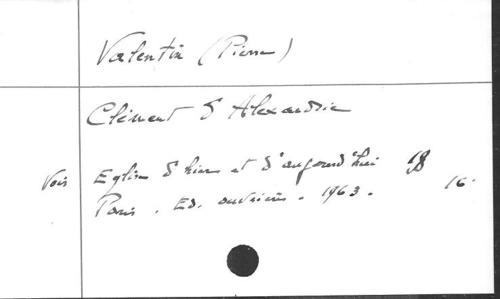 Valentin (Pierre)
Clément d'Alexandrie
Voir Eglise d'hier et d'aujourd'hui 18
Paris. Ed. ouvrières. 1963. 16